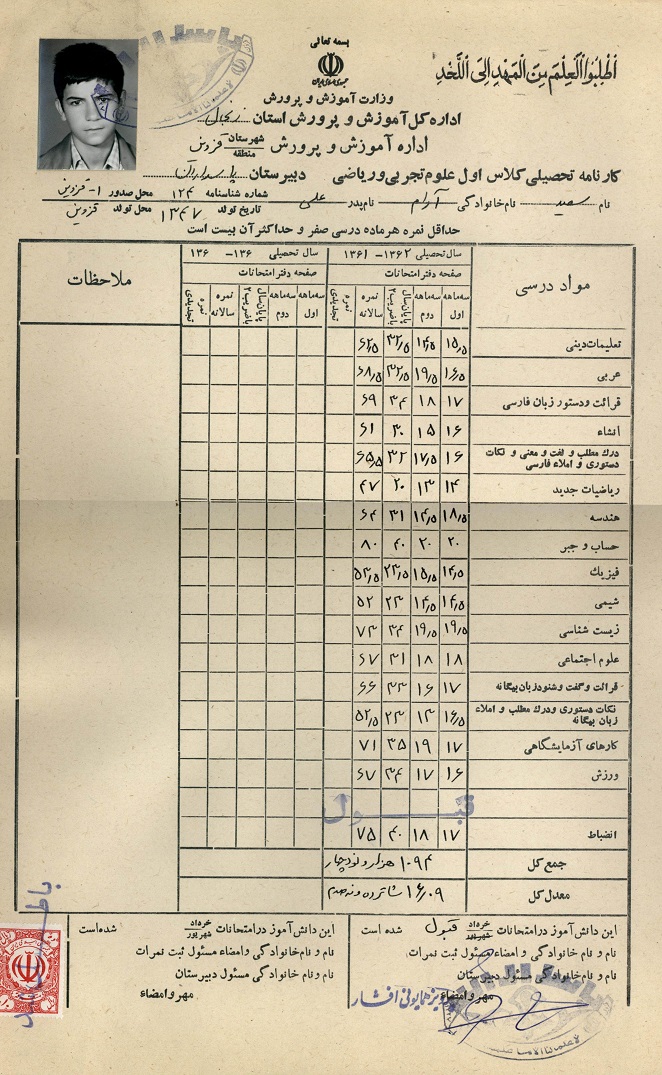 بسمه تعالی
جمهوری اسلامی ایران
اُطْلُبُوا الْعِلْمَ مِنَ الْمَهْدِ اِلَی اللَّحْدِ
وزارت آموزش و پرورش
اداره کل آموزش و پرورش استان زنجان
اداره آموزش و پرورش شهرستان منطقه قزوین
کارنامه تحصیلی کلاس اول علوم تجربی و ریاضی دبیرستان پاسداران
شماره شناسنامه ۱۲۴ محل صدور ۱- قزوین
نام سعید نام خانوادگی آرام نام پدر علی تاریخ تولد ۱۳۴۷ محل تولد قزوین
حداقل نمره هر ماده درسی صفر و حداکثر آن بیست است
مواد درسی سال تحصیلی ۱۳۶۲ - ۱۳۶۱ سال تحصیلی ۱۳۶ - ۱۳۶ ملاحظات
صفحه دفتر امتحانات صفحه دفتر امتحانات
سه ماهه اول سه ماهه دوم پایان سال باضریب ۲ نمره سالانه نمره تجدیدی سه ماهه اول سه ماهه دوم پایان سال باضریب ۲ نمره سالانه نمره تجدیدی
تعلیمات دینی ۱۵٫۵ ۱۴٫۵ ۳۲٫۵ ۶۲٫۵
عربی ۱۶٫۵ ۱۹٫۵ ۳۲٫۵ ۶۸٫۵
قرائت و دستور زبان فارسی ۱۷ ۱۸ ۳۴ ۶۹
انشاء ۱۶ ۱۵ ۳۰ ۶۱
درك مطلب و لغت و معنی و نکات دستوری و املاء فارسی ۱۶ ۱۷٫۵ ۳۲ ۶۵٫۵
ریاضیات جدید ۱۴ ۱۳ ۲۰ ۴۷
هندسه ۱۸٫۵ ۱۴٫۵ ۳۱ ۶۴
حساب و جبر ۲۰ ۲۰ ۴۰ ۸۰
فیزیك ۱۴٫۵ ۱۵٫۵ ۲۳٫۵ ۵۳٫۵
شیمی ۱۴٫۵ ۱۴٫۵ ۲۳ ۵۲
زیست شناسی ۱۹٫۵ ۱۹٫۵ ۳۴ ۷۳
علوم اجتماعی ۱۸ ۱۸ ۳۱ ۶۷
قرائت و گفت و شنود زبان بیگانه ۱۷ ۱۶ ۳۳ ۶۶
نکات دستوری و درك مطلب و املاء زبان بیگانه ۱۶٫۵ ۱۳ ۲۳ ۵۲٫۵
کارهای آزمایشگاهی ۱۷ ۱۹ ۳۵ ۷۱
ورزش ۱۶ ۱۷ ۳۴ ۶۷
قبول
انضباط ۱۷ ۱۸ ۴۰ ۷۵
جمع کل ۱۰۹۴ هزار و نود و چهار
معدل کل ۱۶٫۰۹ شانزده و نه صدم
این دانش آموز در امتحانات خرداد شهریور قبول شده است
نام و نام خانوادگی و امضاء مسئول ثبت نمرات:
نام و نام خانوادگی مسئول دبیرستان
مهر و امضاء
همایونی افشار
این دانش آموز در امتحانات خرداد شهریور شده است
نام و نام خانوادگی و امضاء مسئول ثبت نمرات
نام و نام خانوادگی مسئول دبیرستان
مهر و امضاء